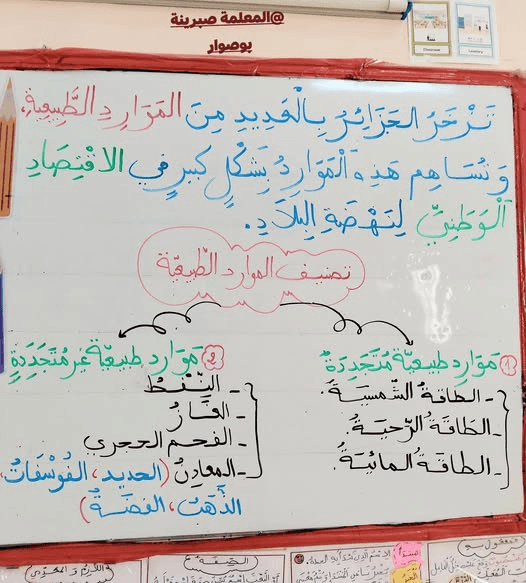 @المعلمة صبرينة
بوصوار
تَزْخَرُ الجَزَائِرُ بِالْعَدِيدِ مِنَ المَوَارِدِ الطَّبِيعِيَّةِ،
وَ تُسَاهِم هَذِهِ الْمَوَارِدُ بِشَكْلٍ كَبِيرٍ فِي الاقْتِصَادِ
الْوَطَنِيِّ لِنَهْضَةِ البِلَادِ.
تصنيف الموارد الطّبيعيّة
① مَوَارِد طبيعيّة مُتَجَدِّدَةٌ
- الطاقةُ الشّمسيّةُ.
- الطَاقَةُ الرّيحيّةُ.
- الطاقَةُ المائيّةُ.
② مَوَارِد طبيعيّة غير مُتَجَدِّدَةٍ
- النّفْطُ
- الغَازُ
- الفحم الحجري
- المعادِنُ (الحديد، الفُوسْفَاتُ،
الذّهَبُ، الفِضّةُ)